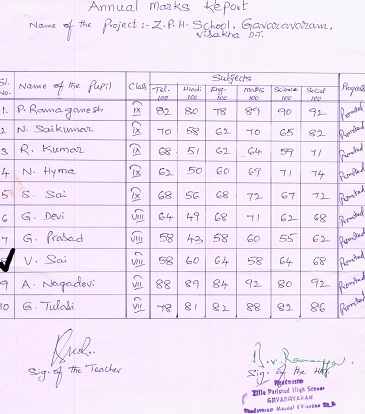 Annual Marks Report
Name of the Project :- Z.P.H. School, Gavaravaram,
Visakha DT.
Sl. No. Name of the Pupil Class Subjects Progress
Tel. 100 Hindi 100 Eng. 100 Maths 100 Science 100 Social 100
1. P. Ramaganesh IX 82 80 78 89 90 92 Promoted
2 N. Saikumar IX 70 58 62 70 65 82 Promoted
3 R. Kumar IX 68 51 62 64 59 71 Promoted
4 N. Hyma IX 62 50 60 69 71 74 Promoted
5 S. Sai IX 68 56 68 72 67 72 Promoted
6 G. Devi VIII 64 49 68 71 62 68 Promoted
7 G. Prasad VIII 58 43 58 60 55 62 Promoted
V. Sai VII 58 60 64 58 64 68 Promoted
9 A. Nagadevi VII 88 89 84 92 80 92 Promoted
10 G. Tulasi VII 78 81 82 88 82 86 Promoted
Sig. of the Teacher
Sig. of the HM
Zilla Parishad High School
GAVARAVARAM